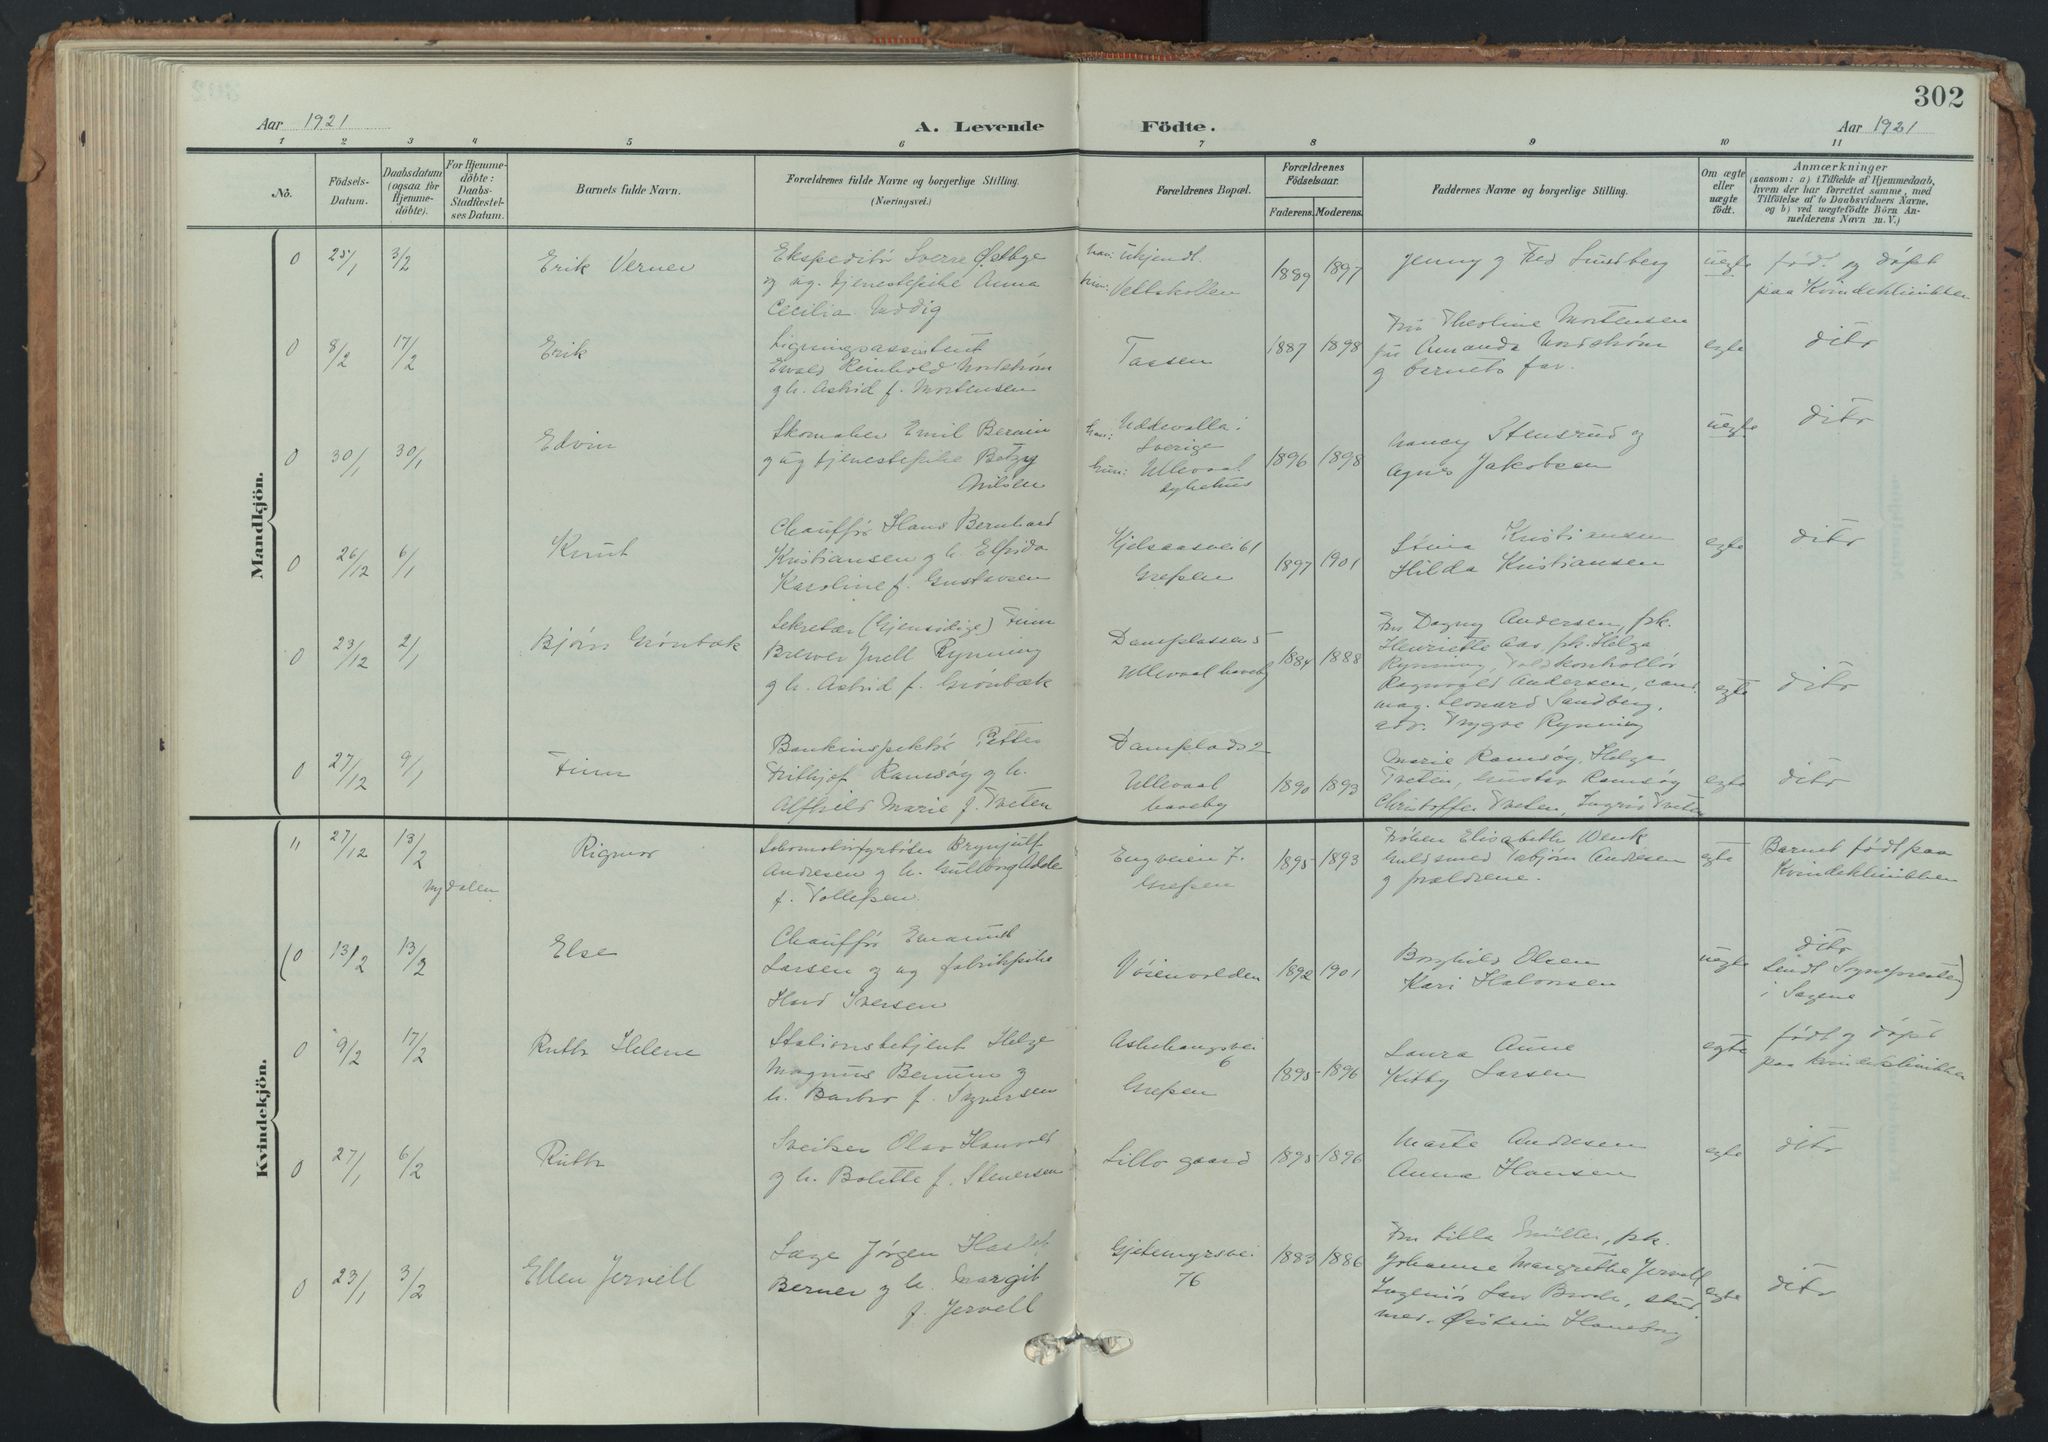 302
Aar 1921
A. Levende Födte.
Aar 1921
1 2 3 4 5 6 7 8 9 10 11
No.
Födsels-
Datum.
Daabsdatum
(ogsaa for
Hjemme-
döbte).
For Hjemme-
döbte:
Daabs-
Stadfæstel-
ses Datum.
Barnets fulde Navn.
Forældrenes fulde Navne og borgerlige Stilling.
(Næringsvei.)
Forældrenes Bopæl.
Forældrenes
Födselsaar.
Faderens. Moderens.
Faddernes Navne og borgerlige Stilling.
Om ægte
eller
uægte
födt.
Anmærkninger
(saasom: a) i Tilfælde af Hjemmedaab,
hvem der har forrettet samme, med
Tilföielse af to Daabsvidners Navne,
og b) ved uægtefödte Börn An-
melderens Navn m. V.)
Mandkjön.
0 25/1 3/2 Erik Verner
Ekspeditør Sverre Østbye
og ug. tjenestepike Anna
Cecilia
han: Ukjendt.
hun: Vettakollen
1889 1897
Jenny og Fred Lundberg
uegte
født og døpt
paa Kvindeklinikken
0 8/2 17/2 Erik
Ligningsassistent
Evald Reinhold Nordstrøm
og h. Astrid f. Mortensen
Taasen
1887 1898
Fru Theoline Mortensen
fru Amanda Nordstrøm
og barnets far.
egte
dito
0 30/1 30/1 Edvin
Skomaker Emil
og ug tjenestepike Betzy
Nilsen
han: Uddevalla i
Sverige
hun: Ullevaal
sykehus
1896 1898
Nancy Stensrud og
Agnes Jakobsen
uegte
dito
0 26/12 6/1 Knut
Chauffør Hans Bernhard
Kristiansen og h. Elfrida
Karoline f. Gustavsen
Kjelsaasvei 61
Grefsen
1897 1901
Stina Kristiansen
Hilda Kristiansen
egte
dito
0 23/12 2/1 Bjørn Grønbæk
Sekretær (Gjensidige) Finn
Brewer Juell Rynning
og h. Astrid f. Grønbæk
Damplassen 5
Ullevaal haveby
1884 1888
Fru Dagny Andersen, frk.
Henriette Aas, frk. Helga
Rynning, Toldkontrollør
Ragnvald Andersen, cand.
mag. Leonard Sandberg,
adv. Trygve Rynning
egte
dito
0 27/12 9/1 Finn
Bankinspektør Petter
Frithjof Ramsøy og h.
Alfhild Marie f. Tveten
Damplads 2
Ullevaal
haveby
1890 1893
Marie Ramsøy, Helga
Tveten, Gustav Ramsøy
Christoffer Tveten, Ingrid Tveten
egte
dito
Kvindekjön.
" 27/12 13/2 Rigmor
Nydalen
Lokomotivfyrbøter Brynjulf
Andresen og h. Gullborg Adele
f. Tollefsen.
Engveien 7.
Grefsen
1895 1893
Frøken Elisabeth Wenk
Guldsmed Andresen
og forældrene.
egte
Barnet født paa
Kvindeklinikken
(0 13/2 13/2 Else
Chauffør Emanuel
Larsen og ug fabrikpike
Iversen
Vøienvolden
1892 1901
Borghild Olsen
Kari Halvorsen
uegte
dito
Sendt Sognepresten)
i Sagene
0 9/2 17/2 Ruth Helene
Stationsbetjent Helge
Magnus Berum og
h. Barbro f. Syversen
Askehaugsvei
6
Grefsen
1895 1896
Laura Aune
Kitty Larsen
egte
født og døpt
paa kvindeklinikken
0 27/1 6/2 Ruth
Sveitser Olav
og h. Bolette f. Stenersen
Lillo gaard
1895 1896
Marte Andresen
Anna Hansen
egte
dito
0 23/1 3/2 Ellen Jervell
Læge Jørgen Haslef
Berner og h. Margit
f. Jervell
Gjetemyrsvei
76
1883 1886
Fru Lilla Müller, frk.
Johanne Margrethe Jervell
Ingeniør Lars Brock, stud
med. Øistein Haneborg
egte
dito